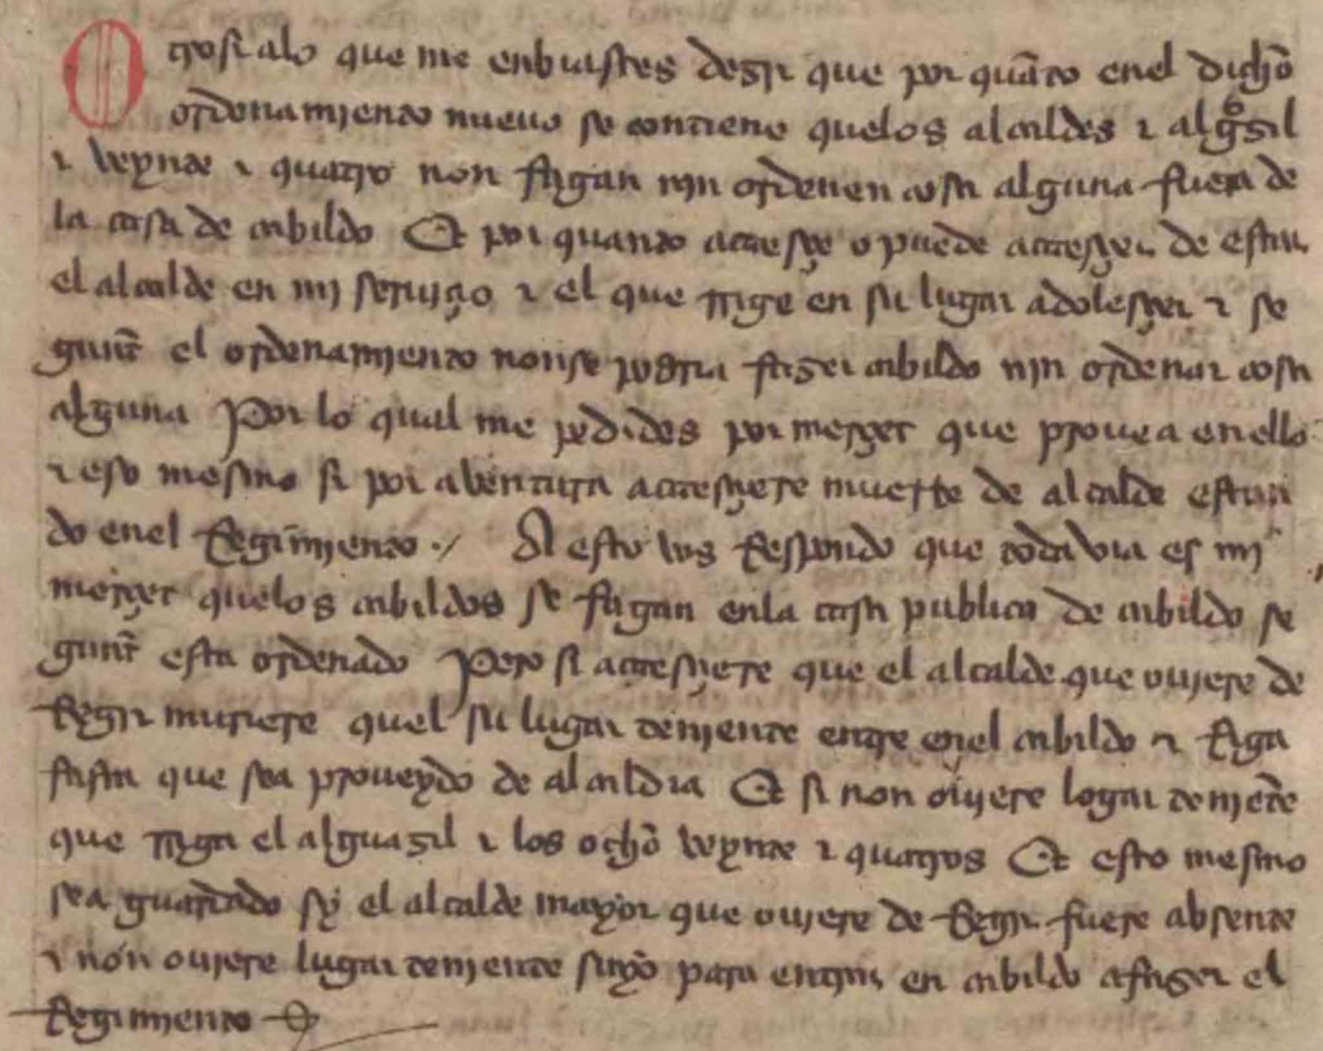 Otrosi alo que me enbiastes dezir que por quãto enel dichõ
ordenamiento nueuo se contiene quelos alcaldes ⁊ algºsil
⁊ veynte ⁊ quatro non fagan nin ordenen cosa alguna fuera de
la casa de cabildo Et por quanto acaesçe o puede acaesçer de estar
el alcalde en mi seruiçio ⁊ el que rige en su lugar adolesçer ⁊ se
gunt el ordenamiento nonse podria fazer cabildo nin ordenar cosa
alguna Por lo qual me pedides por merçet que prouea enello
⁊ eso mesmo si por abentura acaesçiere muerte de alcalde estan
do enel Regimiento ./ A esto vos Respondo que toda via es mi
merçet quelos cabildos se fagan enla casa publica de cabildo se
gunt esta ordenado Pero si acaesçiere que el alcalde que ouiere de
Regir muriere quel su lugar teniente entre enel cabildo ⁊ Riga
fasta que sea proueydo de alcaldia Et si non ouiere logar teniẽte
que Riga el alguazil ⁊ los ochõ veynte ⁊ quatros Et esto mesmo
sea guardado sy el alcalde mayor que ouiere de Regir fuere absente
⁊ non ouiere lugar teniente suyo para entrar en cabildo a fazer el
Regimiento